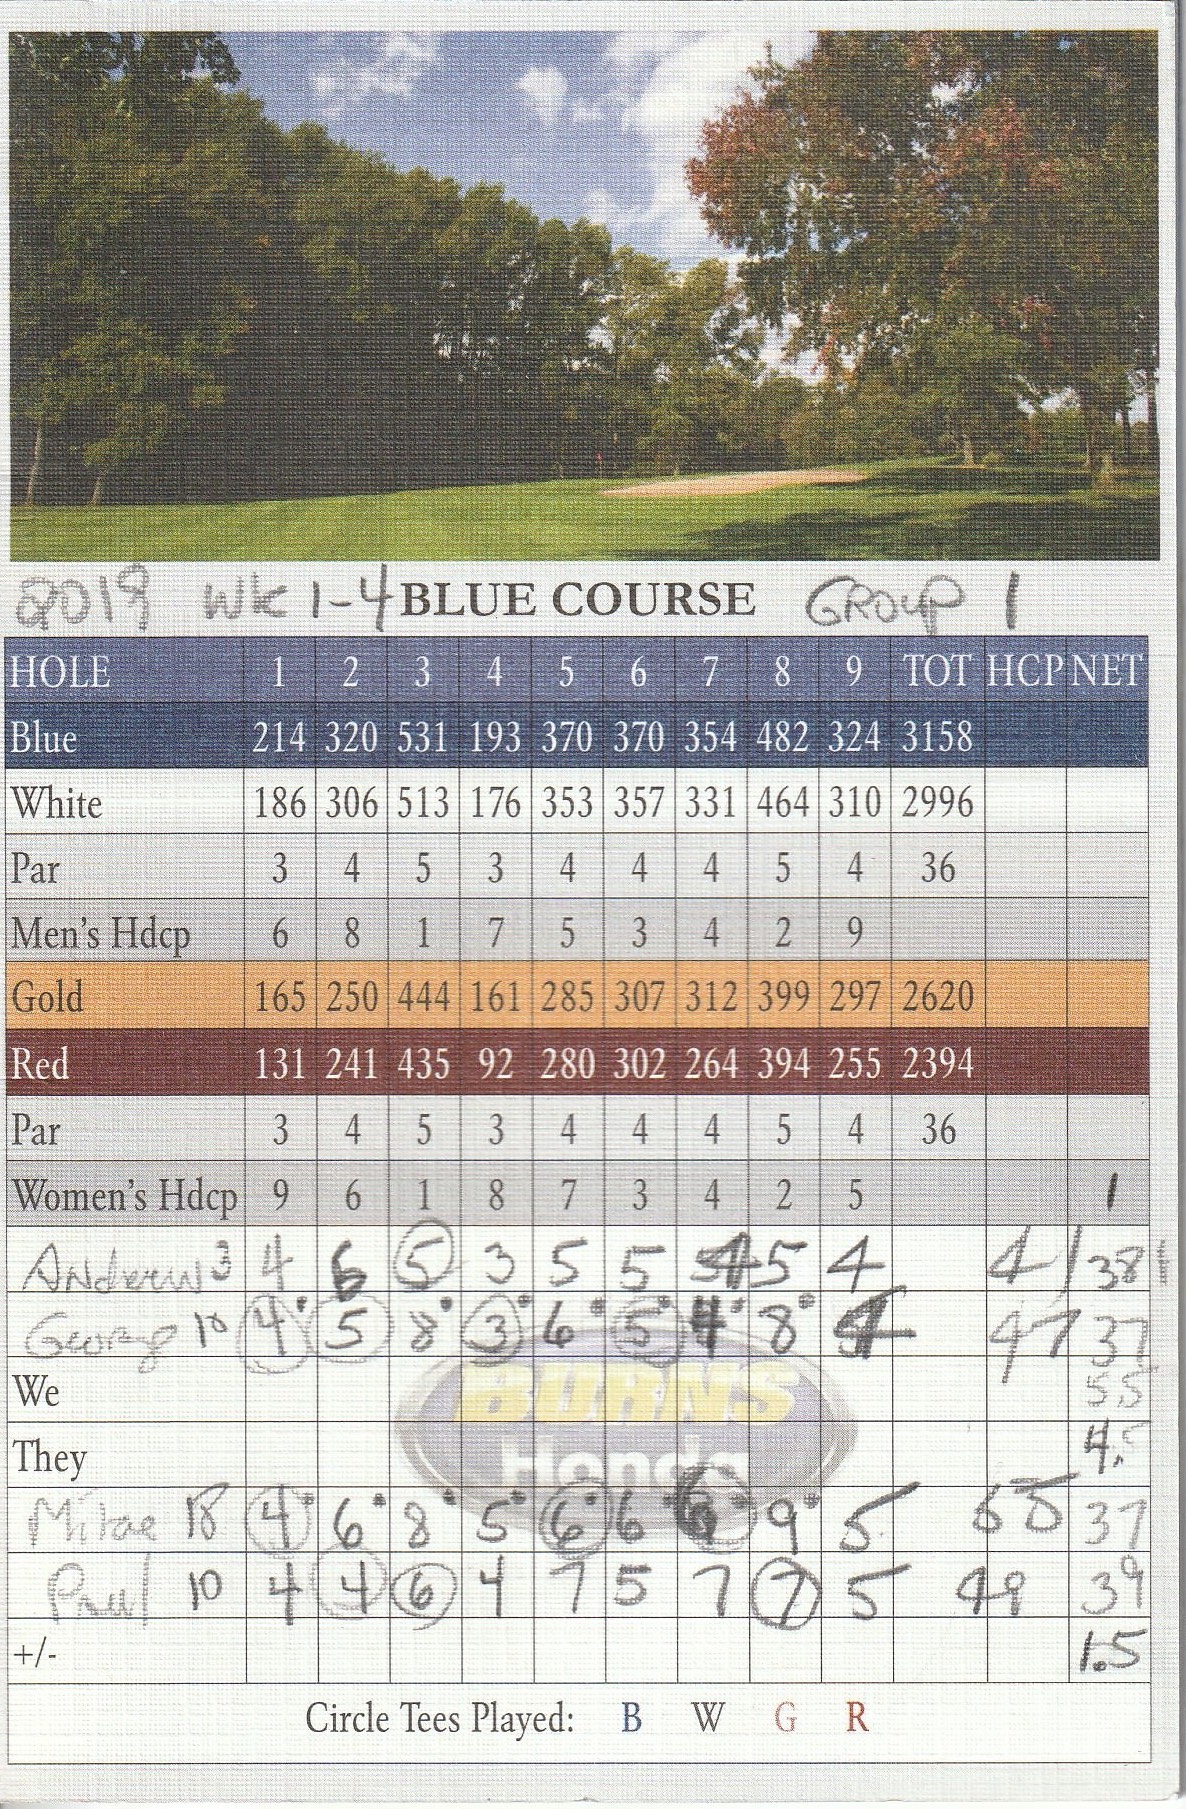 2019 WK 1-4 BLUE COURSE GROUP 1
HOLE 1 2 3 4 5 6 7 8 9 TOT HCP NET
Blue 214 320 531 193 370 370 354 482 324 3158
White 186 306 513 176 353 357 331 464 310 2996
Par 3 4 5 3 4 4 4 5 4 36
Men's Hdcp 6 8 1 7 5 3 4 2 9
Gold 165 250 444 161 285 307 312 399 297 2620
Red 131 241 435 92 280 302 264 394 255 2394
Par 3 4 5 3 4 4 4 5 4 36
Women's Hdcp 9 6 1 8 7 3 4 2 5 1
Andrew 3 4 6 5 3 5 5 4 5 4 41 38
George 10 4 5 8 3 6 5 4 8 4 47 37
BURNS
Honda
We 5.5
They 4.5
18 4 6 8 5 6 6 6 9 5 55 37
Paul 10 4 4 6 4 7 5 7 7 5 49 39
+/- 1.5
Circle Tees Played: B W G R